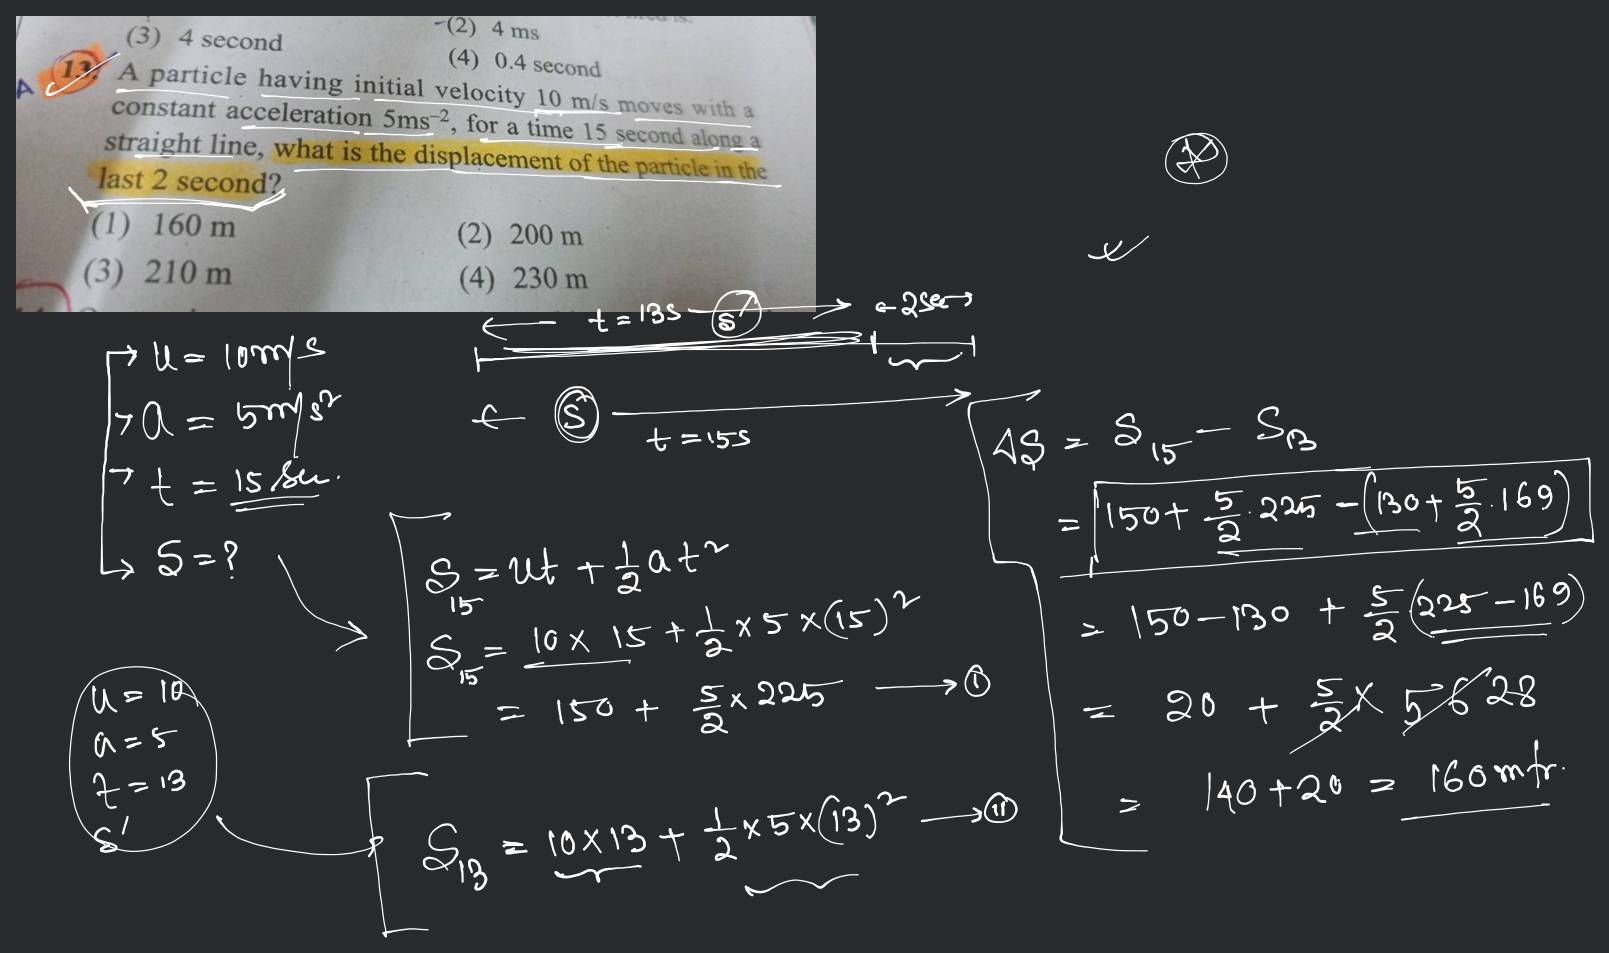 (3) 4 second
-(2) 4 ms
(4) 0.4 second
A
13. A particle having initial velocity 10 m/s moves with a
constant acceleration 5ms⁻², for a time 15 second along a
straight line, what is the displacement of the particle in the
last 2 second?
(1) 160 m
(2) 200 m
(3) 210 m
(4) 230 m
t = 13s S'
2sec
S
t = 15s
→ u = 10m/s
→ a = 5m/s²
→ t = 15 sec.
→ S = ?
S₁₅ = ut + 1/2 at²
S₁₅ = 10 × 15 + 1/2 × 5 × (15)²
= 150 + 5/2 × 225 → (I)
u = 10
a = 5
t = 13
S'
S₁₃ = 10×13 + 1/2 × 5×(13)² → (II)
ΔS = S₁₅ - S₁₃
= 150 + 5/2 . 225 - (130 + 5/2 . 169)
= 150 - 130 + 5/2 (225 - 169)
= 20 + 5/2 × 56 28
= 140 + 20 = 160 mtr.